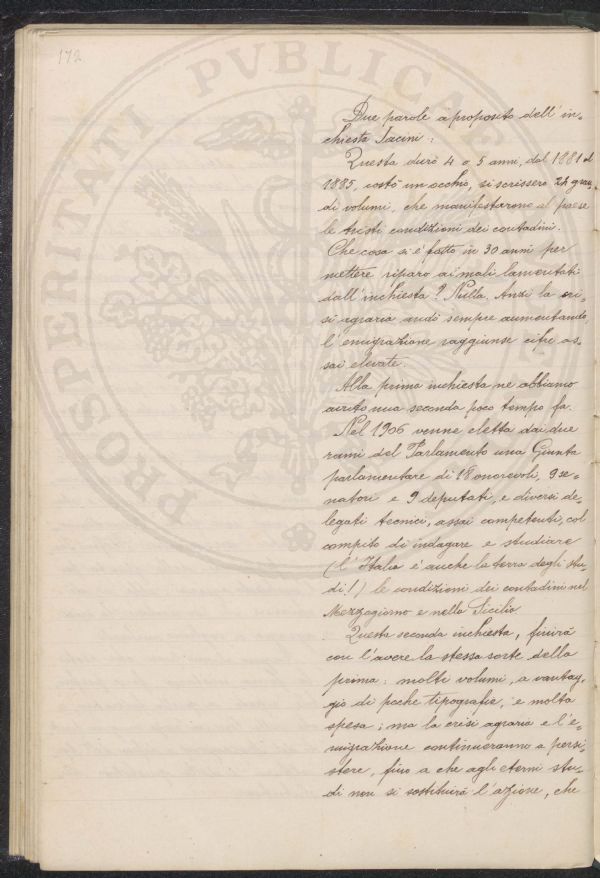 172
PROSPERITATI PVBLICAE
Due parole a proposito dell' in-
chiesta Jacini:
Questa durò 4 o 5 anni, dal 1881 al
1885, costò un occhio, si scrissero 24 gran-
di volumi, che manifestarono al paese
le tristi condizioni dei contadini.
Che cosa si è fatto in 30 anni per
mettere riparo ai mali lamentati
dall' inchiesta? Nulla. Anzi la cri-
si agraria andò sempre aumentando,
l' emigrazione raggiunse cifre as-
sai elevate.
Alla prima inchiesta ne abbiamo
avuto una seconda poco tempo fa.
Nel 1906 venne eletta dai due
rami del Parlamento una Giunta
parlamentare di 18 onorevoli, 9 se-
natori e 9 deputati, e diversi de-
legati tecnici, assai competenti, col
compito di indagare e studiare
(l' Italia è anche la terra degli stu-
di!) le condizioni dei contadini nel
Mezzogiorno e nella Sicilia
Questa seconda inchiesta, finirà
con l'avere la stessa sorte della
prima: molti volumi, a vantag-
gio di poche tipografie, e molta
spesa; ma la crisi agraria e l'e-
migrazione continueranno a persi-
stere, fino a che agli eterni stu-
di non si sostituirà l'azione, che